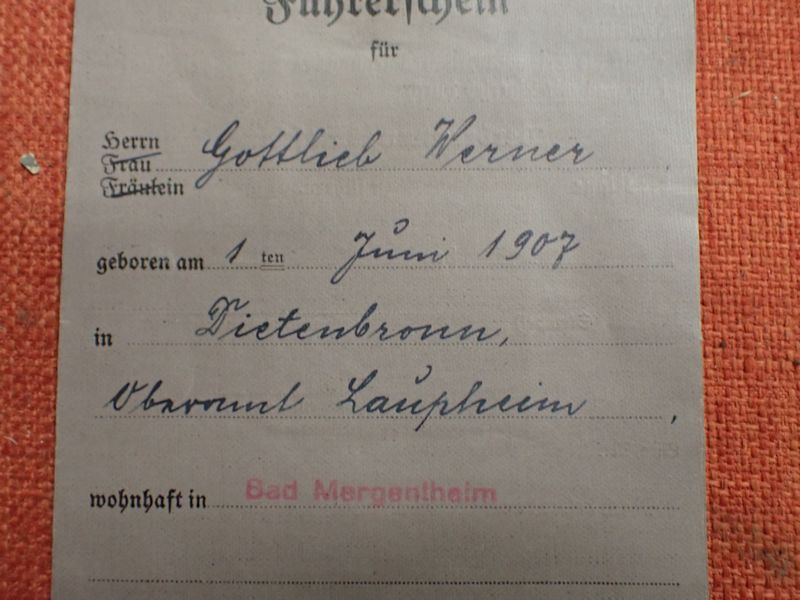 Führerschein
für
Herrn
Frau Gottlieb Werner
Fräulein
geboren am 1 ten Juni 1907
in Dietenbronn,
Oberamt Laupheim,
wohnhaft in Bad Mergentheim